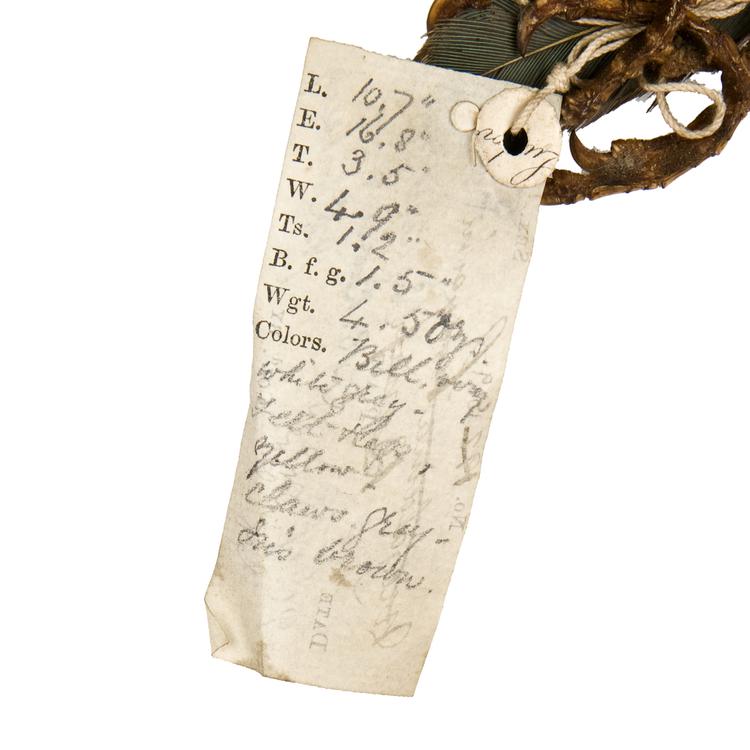 L. 10.7"
E. 16.8"
T. 3.5"
W. 4.9"
Ts. 1.2"
B. f. g. 1.5"
Wgt. 4.50zs.
Colors. Bill.
white grey-
Feet & legs
yellow,
claws. grey-
Iris brown.
DATE
No.